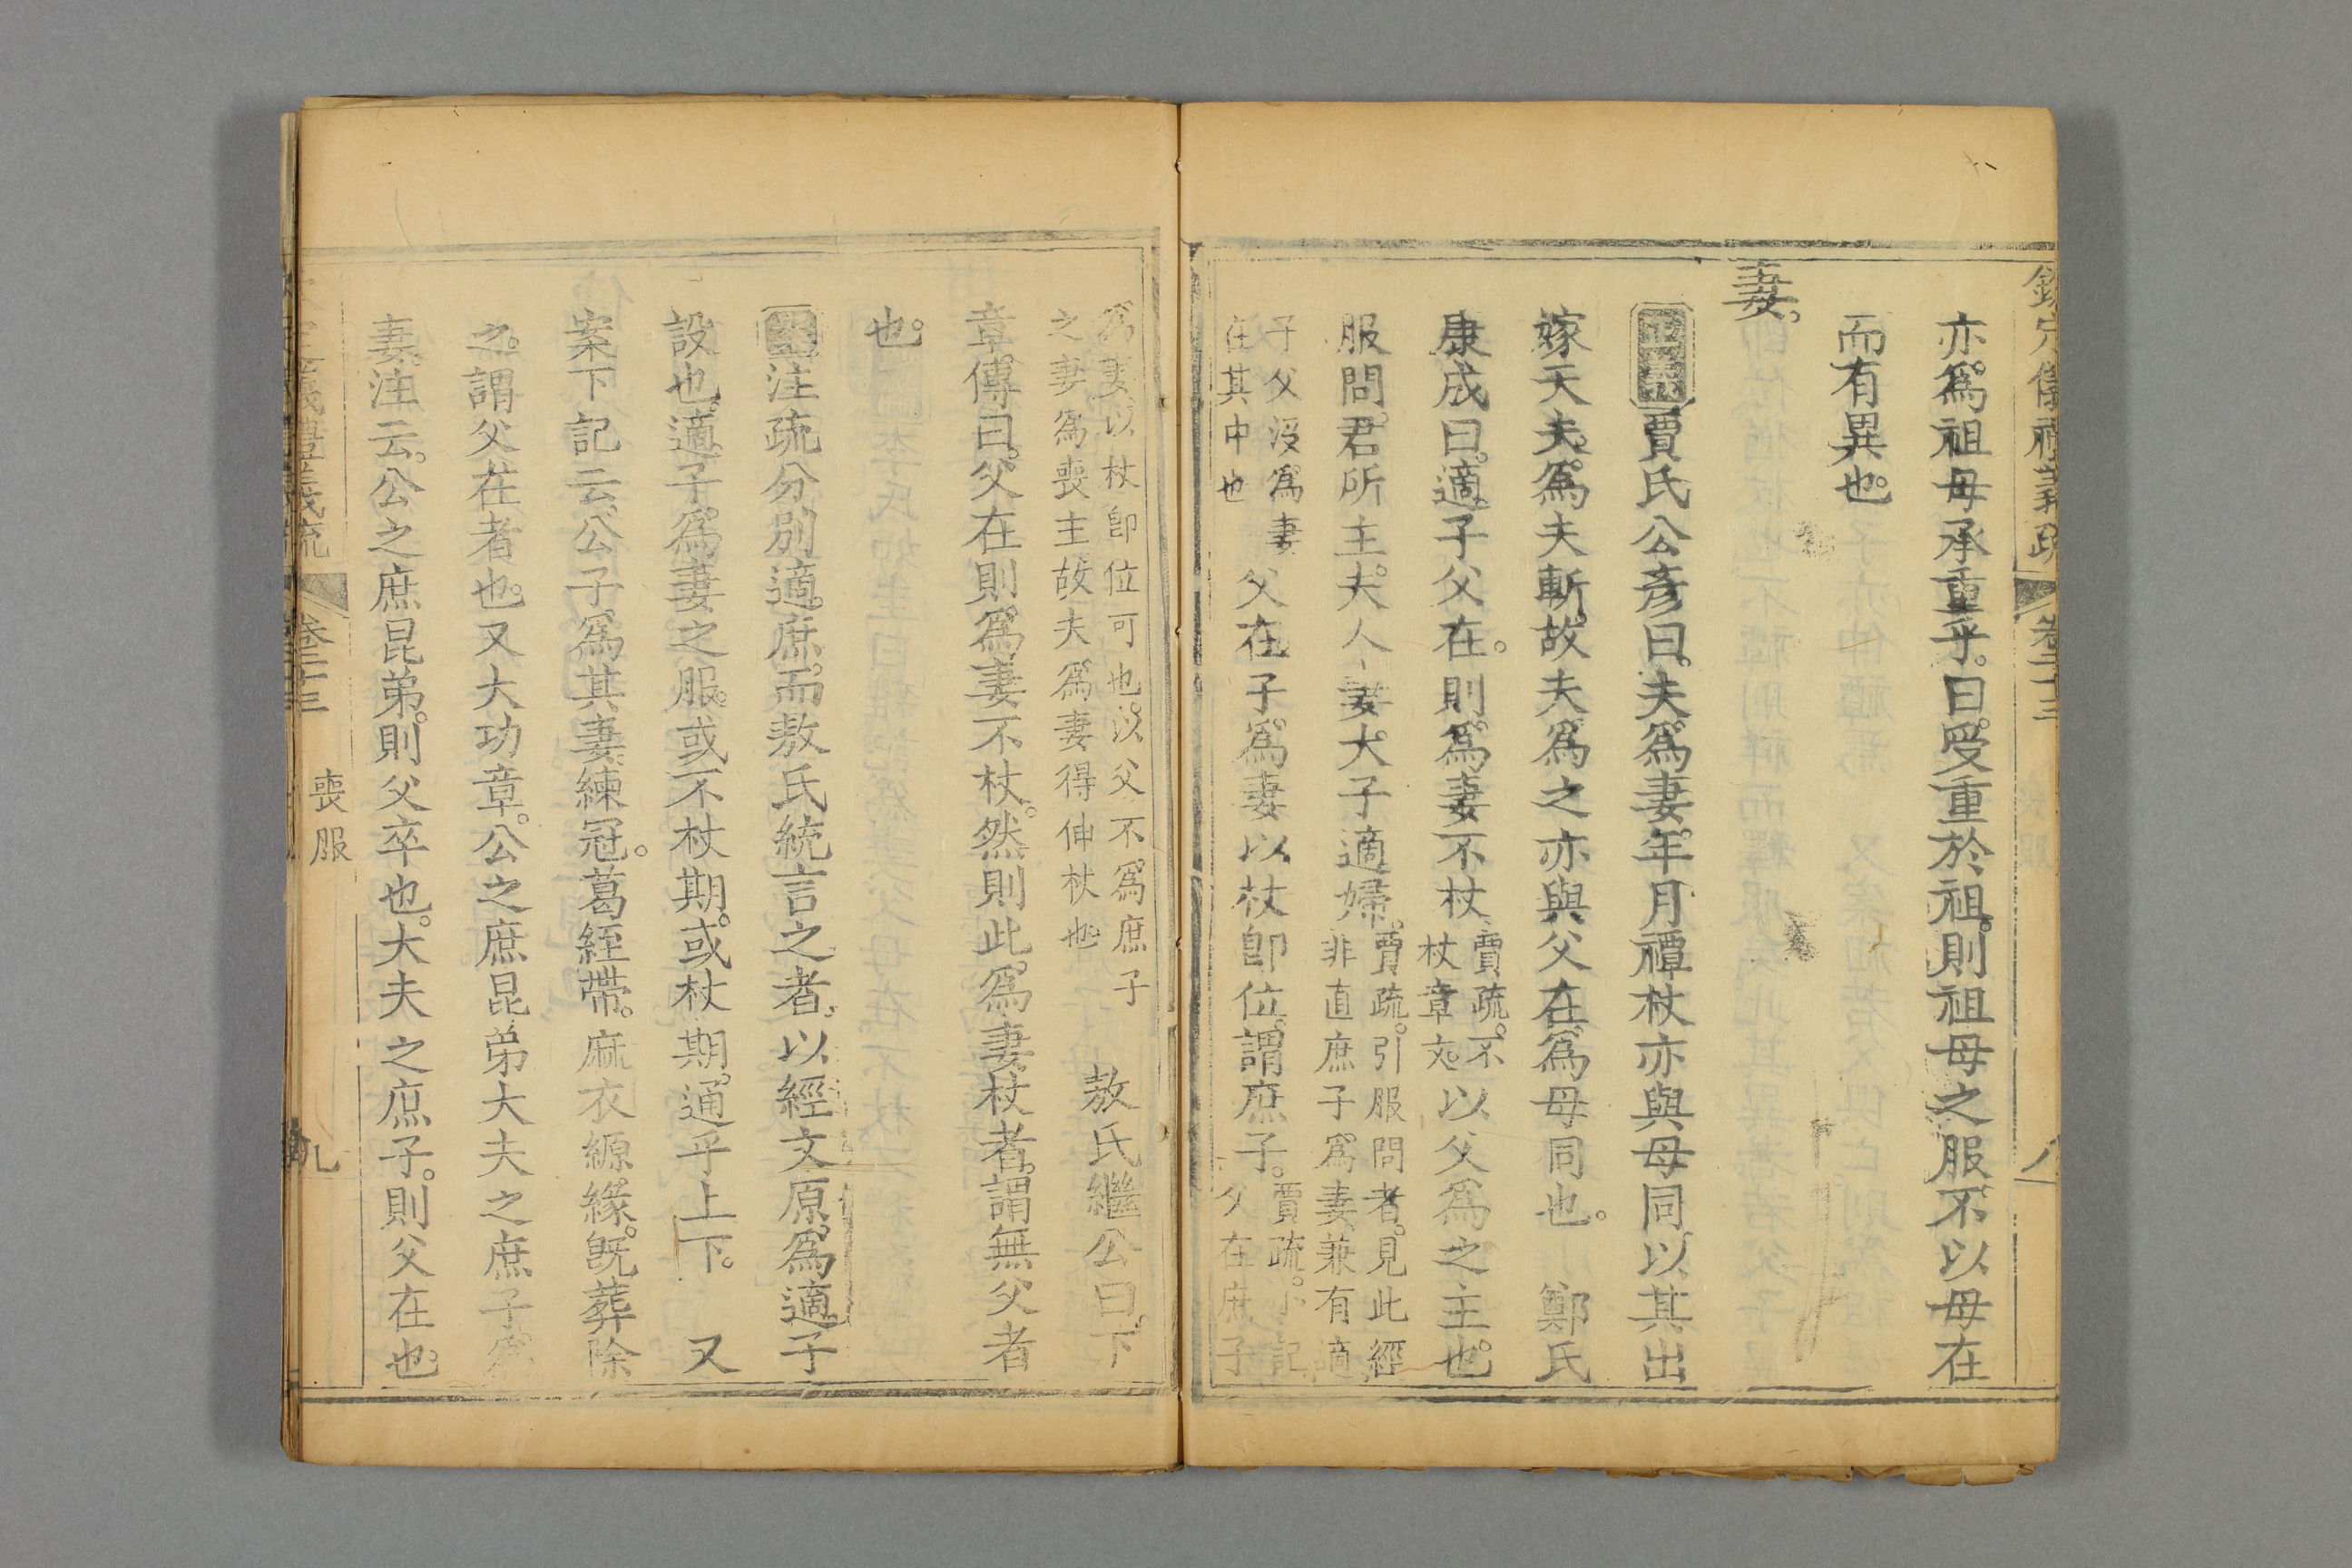 欽定儀禮義疏 卷二十三 八
亦爲祖母承重乎曰受重於祖則祖母之服不以母在
而有異也
妻
正義賈氏公彥曰夫爲妻年月禫杖亦與母同以其出
嫁天夫爲夫斬故夫爲之亦與父在爲母同也 鄭氏
康成曰適子父在則爲妻不杖賈疏不
杖章文以父爲之主也
服問君所主夫人妻大子適婦賈疏引服問者見此經
非直庶子爲妻兼有適
子父沒爲妻
在其中也 父在子爲妻以杖即位謂庶子賈疏小記
父在庶子
爲妻以杖卽位可也以父不爲庶子
之妻爲喪主故夫爲妻得伸杖也 敖氏繼公曰下
章傳曰父在則爲妻不杖然則此爲妻杖者謂無父者
也
案注疏分別適庶而敖氏統言之者以經文原爲適子
設也適子爲妻之服或不杖期或杖期通乎上下 又
案下記云公子爲其妻練冠葛絰帶麻衣縓緣旣葬除
之謂父在者也又大功章公之庶昆弟大夫之庶子爲
妻注云公之庶昆弟則父卒也大夫之庶子則父在也
欽定儀禮義疏 卷二十三 喪服 九